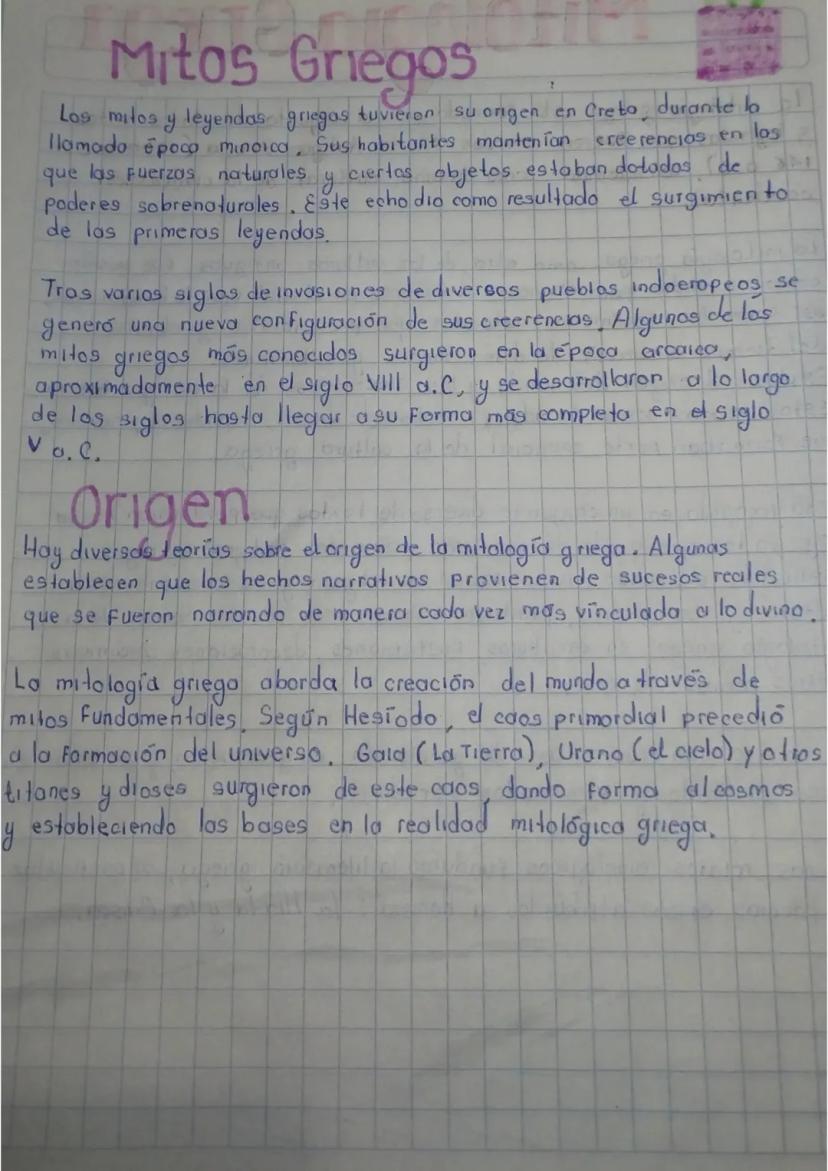 Mitos Griegos
Los mitos y leyendas griegas tuvieron su origen en Creta, durante la
llamado época minoica. Sus habitantes mantenían creerencias en las
que las fuerzas naturales y ciertos objetos estaban dotados de
poderes sobrenaturales. Este echo dio como resultado el surgimiento
de las primeras leyendas.
Tras varios siglos de invasiones de diversos pueblos indoeropeos se
generó una nueva configuración de sus creerencias. Algunos de los
mitos griegos más conocidos surgieron en la época arcaica,
aproximadamente en el siglo VIII a.C, y se desarrollaron a lo largo
de los siglos hasta llegar a su forma más completa en el siglo
V a.C.
Origen
Hay diversas teorías sobre el origen de la mitología griega. Algunas
establecen que los hechos narrativos provienen de sucesos reales
que se fueron narrando de manera cada vez más vinculada a lo divino.
La mitología griega aborda la creación del mundo a través de
mitos fundamentales. Según Hesíodo, el caos primordial precedió
a la formación del universo. Gaia (La Tierra), Urano (el cielo) y otros
titanes y dioses surgieron de este caos, dando forma al cosmos
y estableciendo las bases en la realidad mitológica griega.